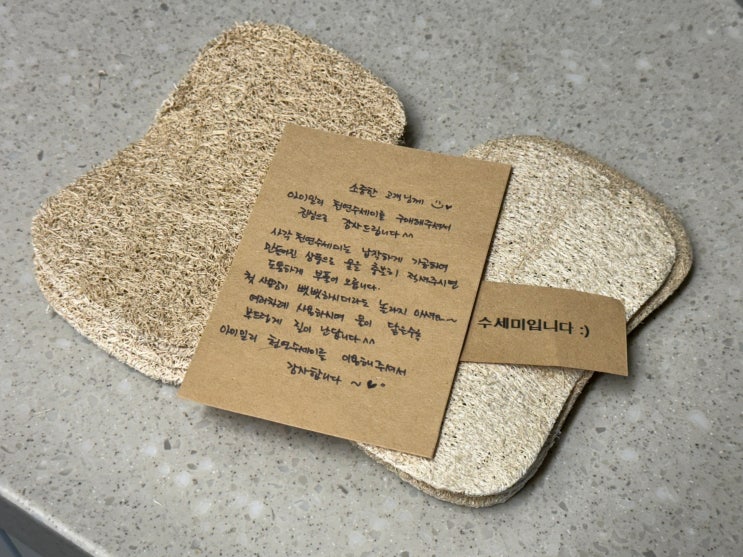 소중한 고객님께
아이밀리 천연수세미를 구매해주셔서
진심으로 감사드립니다 ^^
사각 천연수세미는 납작하게 가공하여
만들어진 상품으로 물을 충분히 적셔주시면
도톰하게 부풀어 오릅니다.
첫 사용감이 뻣뻣하시더라도 놀라지 마세요~
여러차례 사용하시며 물이 닿을수록
부드럽게 길이 난답니다 ^^
아이밀리 천연수세미를 이용해주셔서
감사합니다 ~
수세미입니다 :)